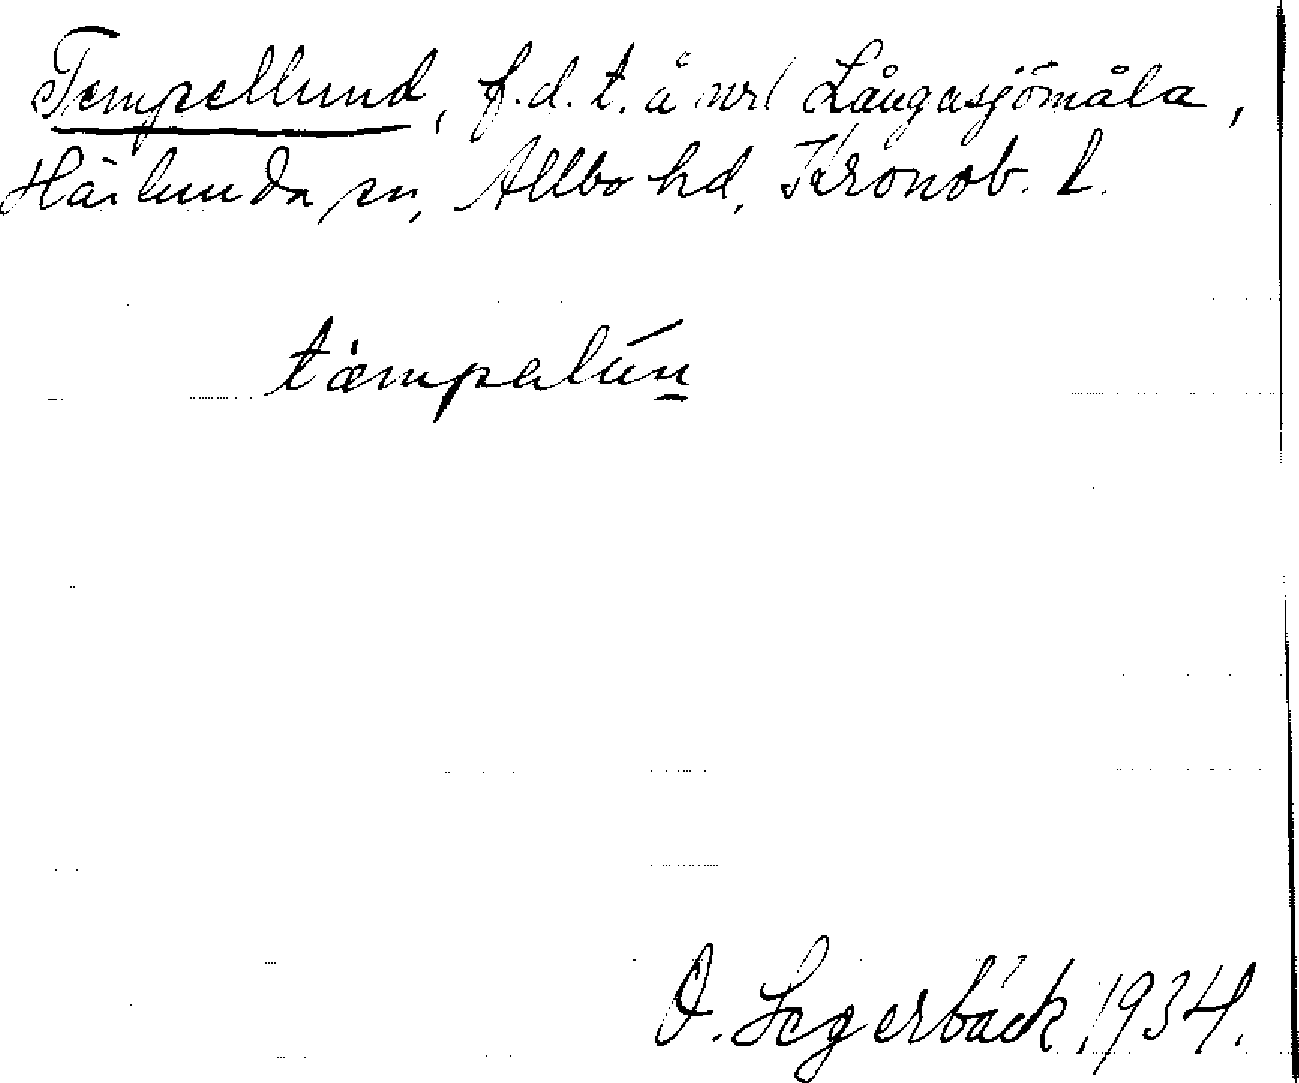 Tempellund, f.d. t. å nr 1 Långasjömåla,
Härlunda sn, Allbo hd, Kronob. l.
tæ̀mpalún
O. Segerbäck, 1934.